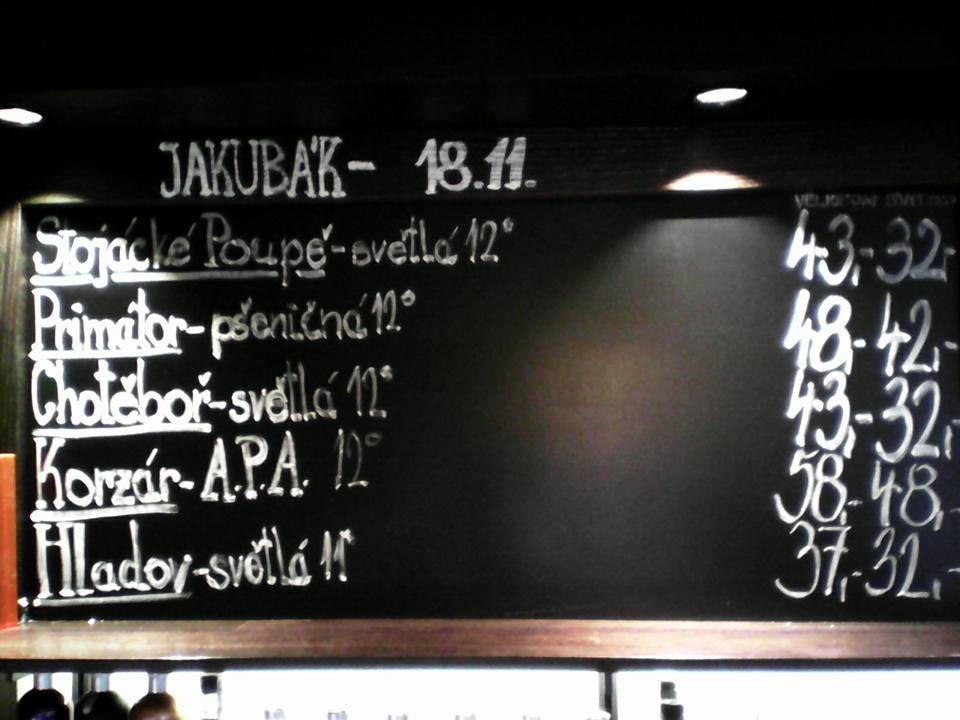 JAKUBÁK - 18.11.
Stojácké Poupě - světlá 12° 43,- 32,-
Primátor - pšeničná 12° 48,- 42,-
Chotěboř - světlá 12° 43,- 32,-
Korzár - A.P.A. 12° 58,- 48,-
Hladov - světlá 11° 37,- 32,-